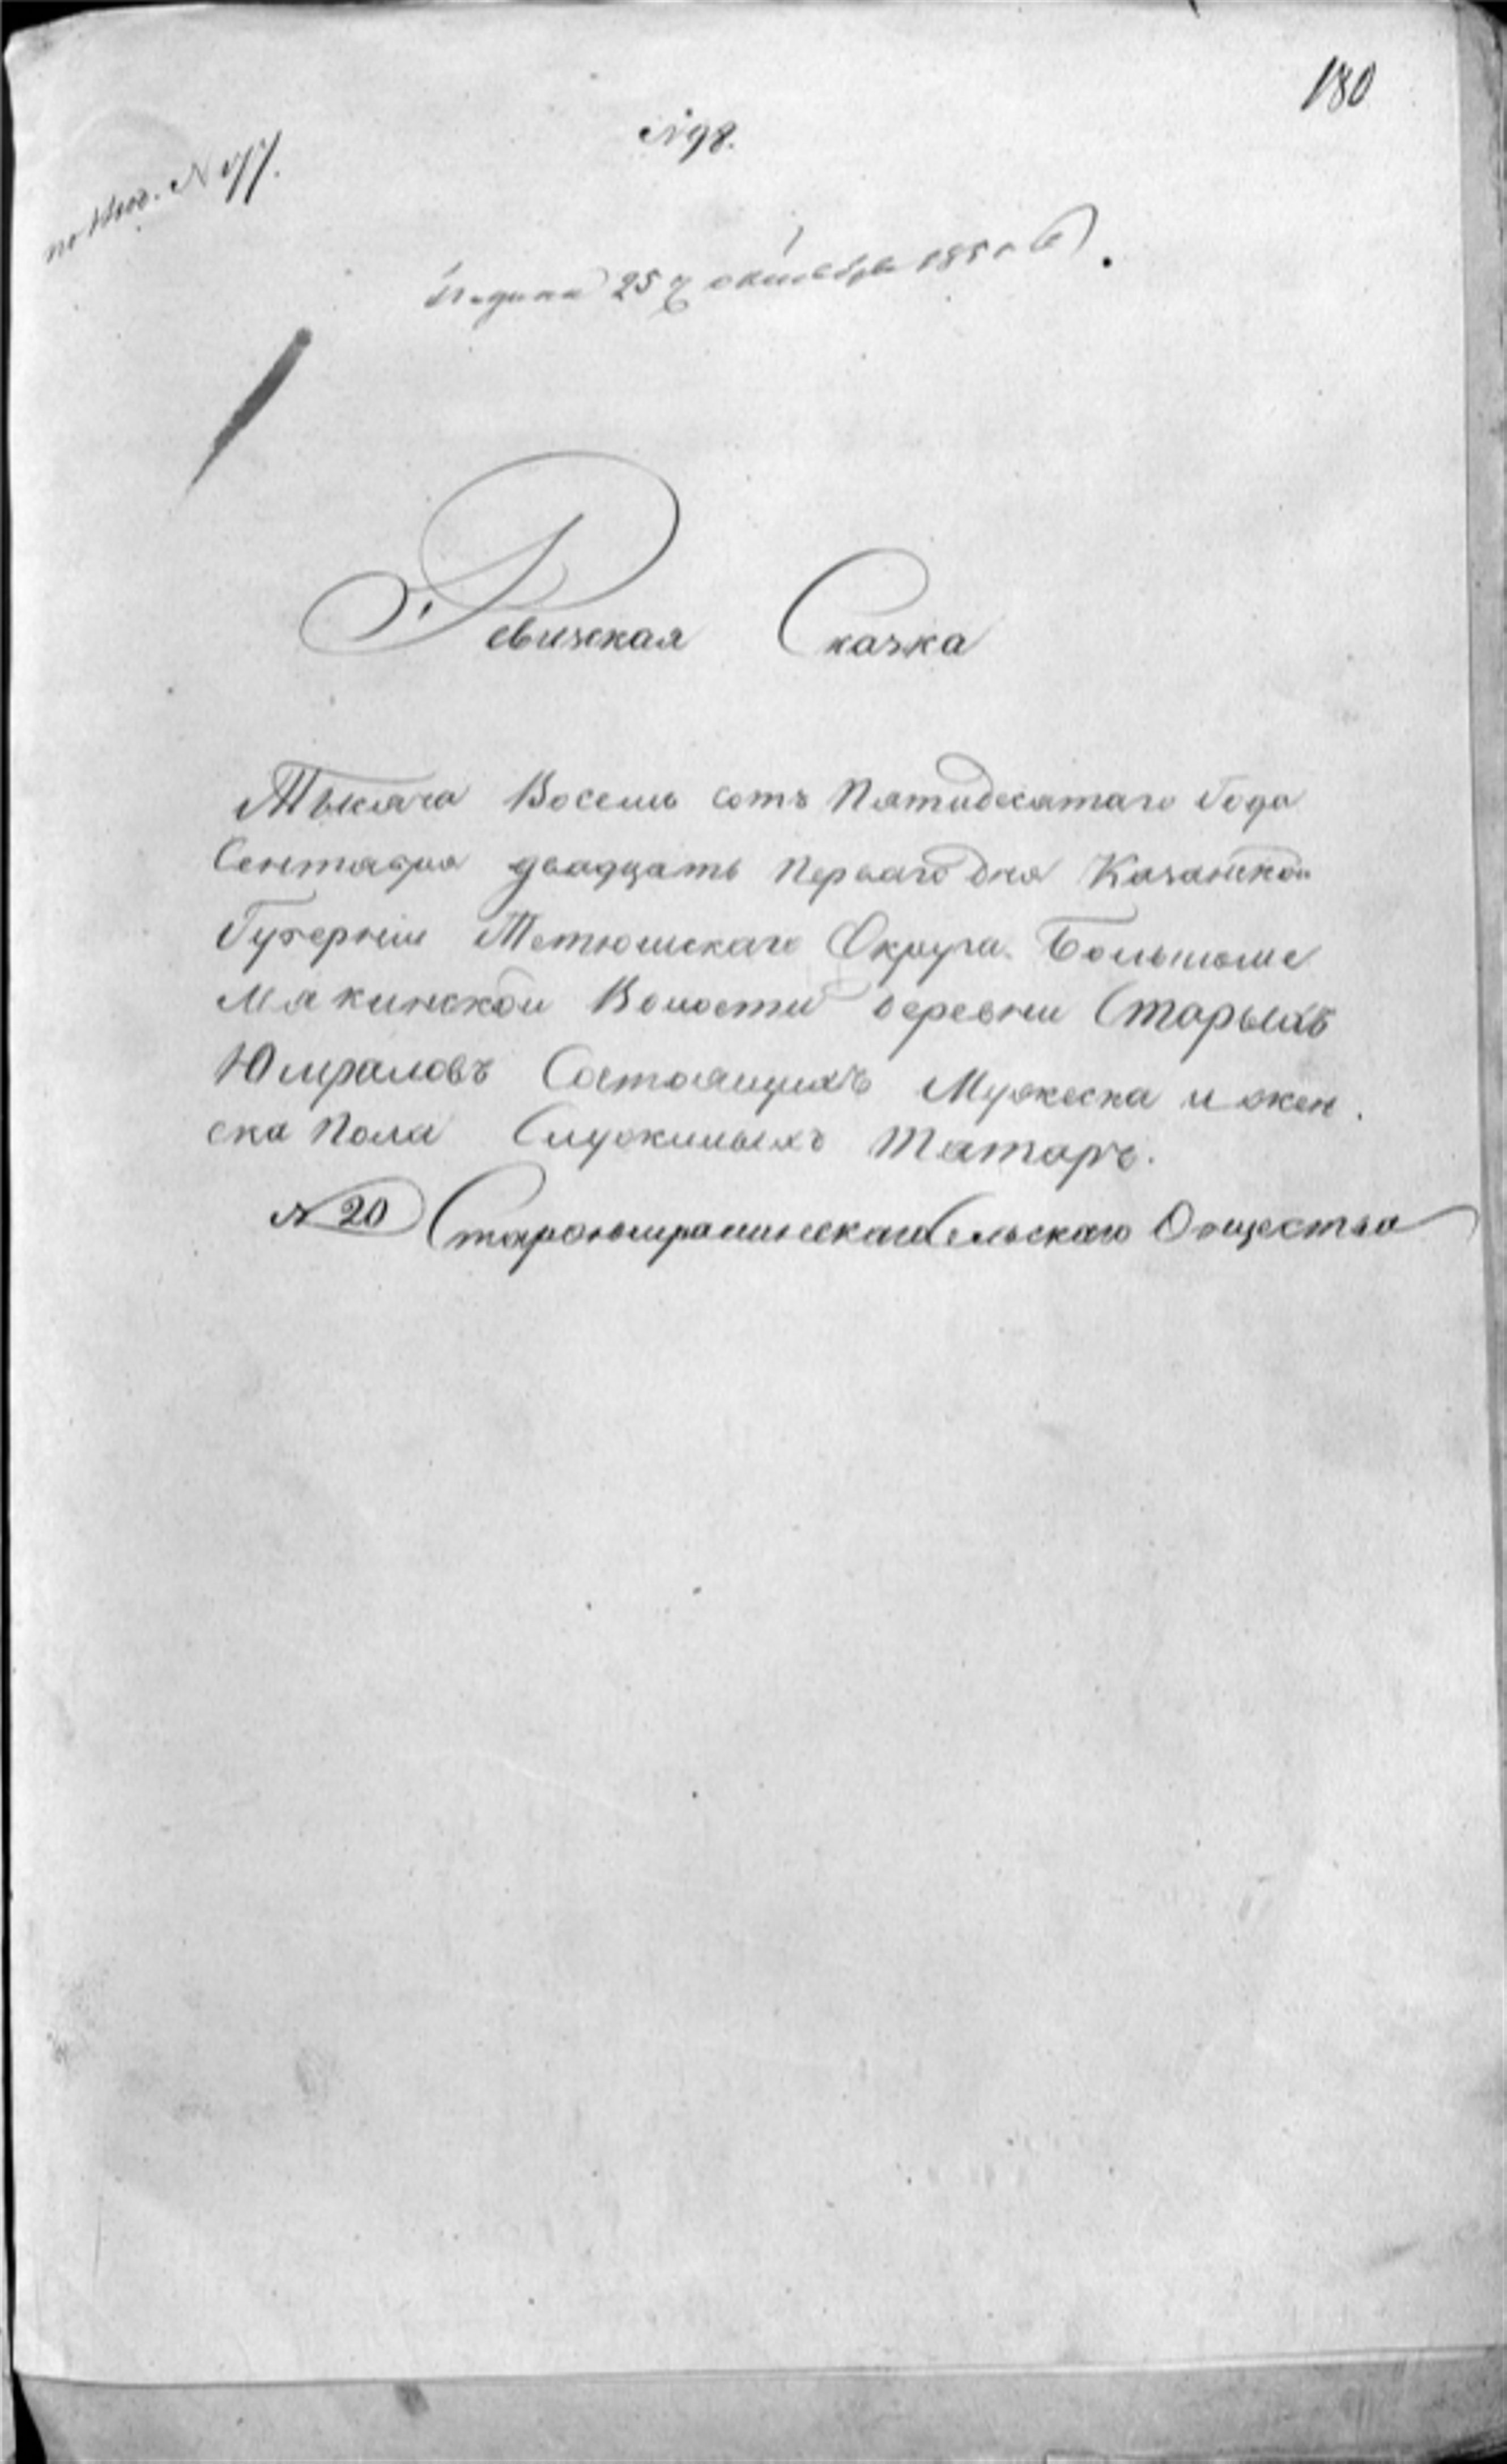 180
№ 98.
по
Подана 25 октября 1850 г.
Ревизская Сказка
Тысяча Восемь сотъ Пятидесятаго Года
Сентября двадцать Перваго дня Казанской
Губернiи Тетюшскаго Округа. Большеме
Мякинской Волости деревни Старыхъ
Юмраловъ Состоящихъ Мужеска и жен
ска Пола Служилыхъ Татаръ.
№ 20 Сельскаго Общества